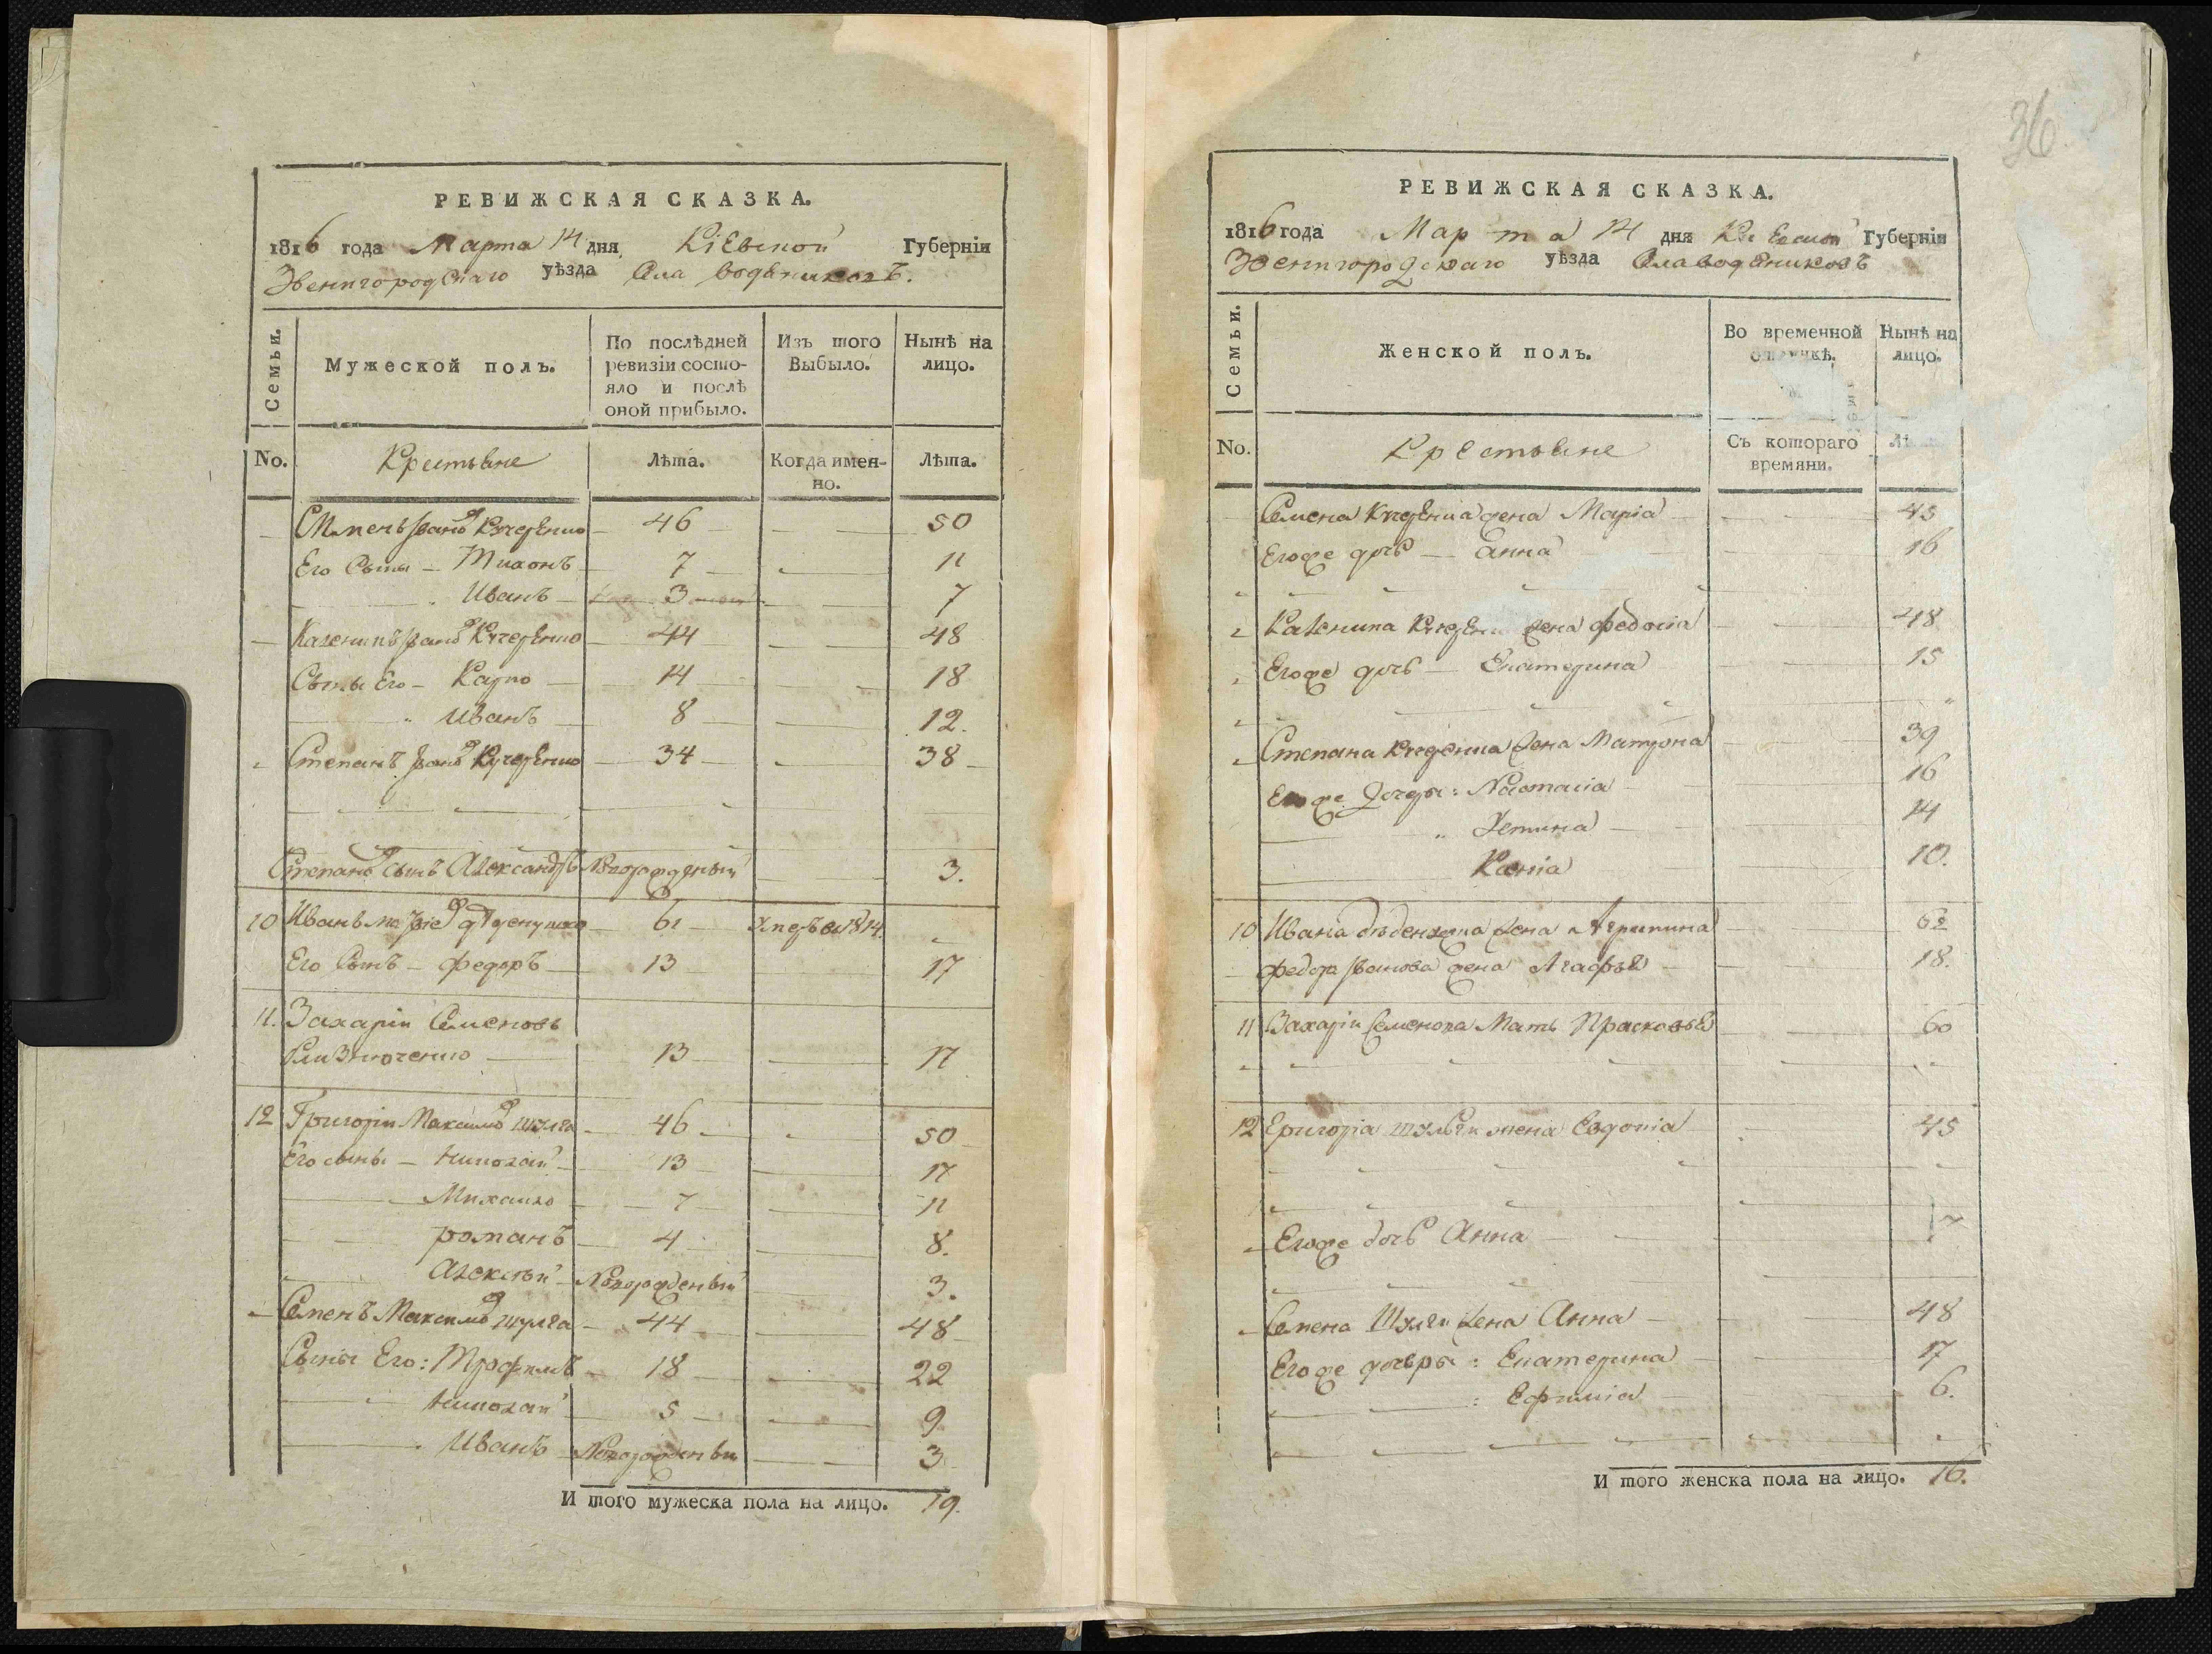 РЕВИЖСКАЯ СКАЗКА.
1816 года Марта 14 дня Кіевской Губерніи
Звенигородскаго уѣзда Села Водяниковъ.
Семьи.
Мужеской полъ.
По послѣдней ревизіи состояло и послѣ оной прибыло.
Изъ того Выбыло.
Нынѣ на лицо.
No. Крестьяне Лѣта. Когда именно. Лѣта.
Семенъ Иванов Кучеренко 46 50
Его Сыны Тихонъ 7 11
Иванъ 3 7
Каленикъ Иванов Кучеренко 44 48
Сыны Его Карпо 14 18
Иванъ 8 12.
Степанъ Иванов Кучеренко 34 38
Степанов сынъ Александръ Новорожденный 3.
10 Иванъ 61 Умеръ в 1814.
Его Сынъ Федоръ 13 17
11. Захарій Семеновъ
13 17
12 Григорій Максимов Шулга 46 50
Его сыны Николай 13 17
Михайло 7 11
романъ 4 8.
Алексѣй Новорожденый 3.
Семенъ Максимов Шулга 44 48
Сыны Его: Трофимъ 18 22
Николай 5 9
Иванъ Новорожденый 3
И того мужеска пола на лицо. 19.
36
РЕВИЖСКАЯ СКАЗКА.
1816 года Марта 14 дня Кіевской Губерніи
Звенигородскаго уѣзда Села Водяниковъ
Семьи.
Женской полъ.
Во временной отлучкѣ.
Нынѣ на лицо.
No. Крестьяне Съ котораго времяни.
Семена Кучеренка жена Марія 45
Егоже дочь Анна 16
Каленика жена Федосія 48
Егоже дочь Екатерина 15
Степана Кучеренка жена Матрона 39
Егоже дочери: Настасія 16
Устина 14
Ксенія 10.
10 Ивана жена Агрипина
Федора Иванова жена Агафья 18.
11 Захарія Семенова Мать Прасковья 60
12 Григорія шулги жена Евдокія 45
Егоже дочь Анна
Семена Шулги жена Анна 48
Егоже дочери: Екатерина 17
Ефимія 6.
И того женска пола на лицо. 16.